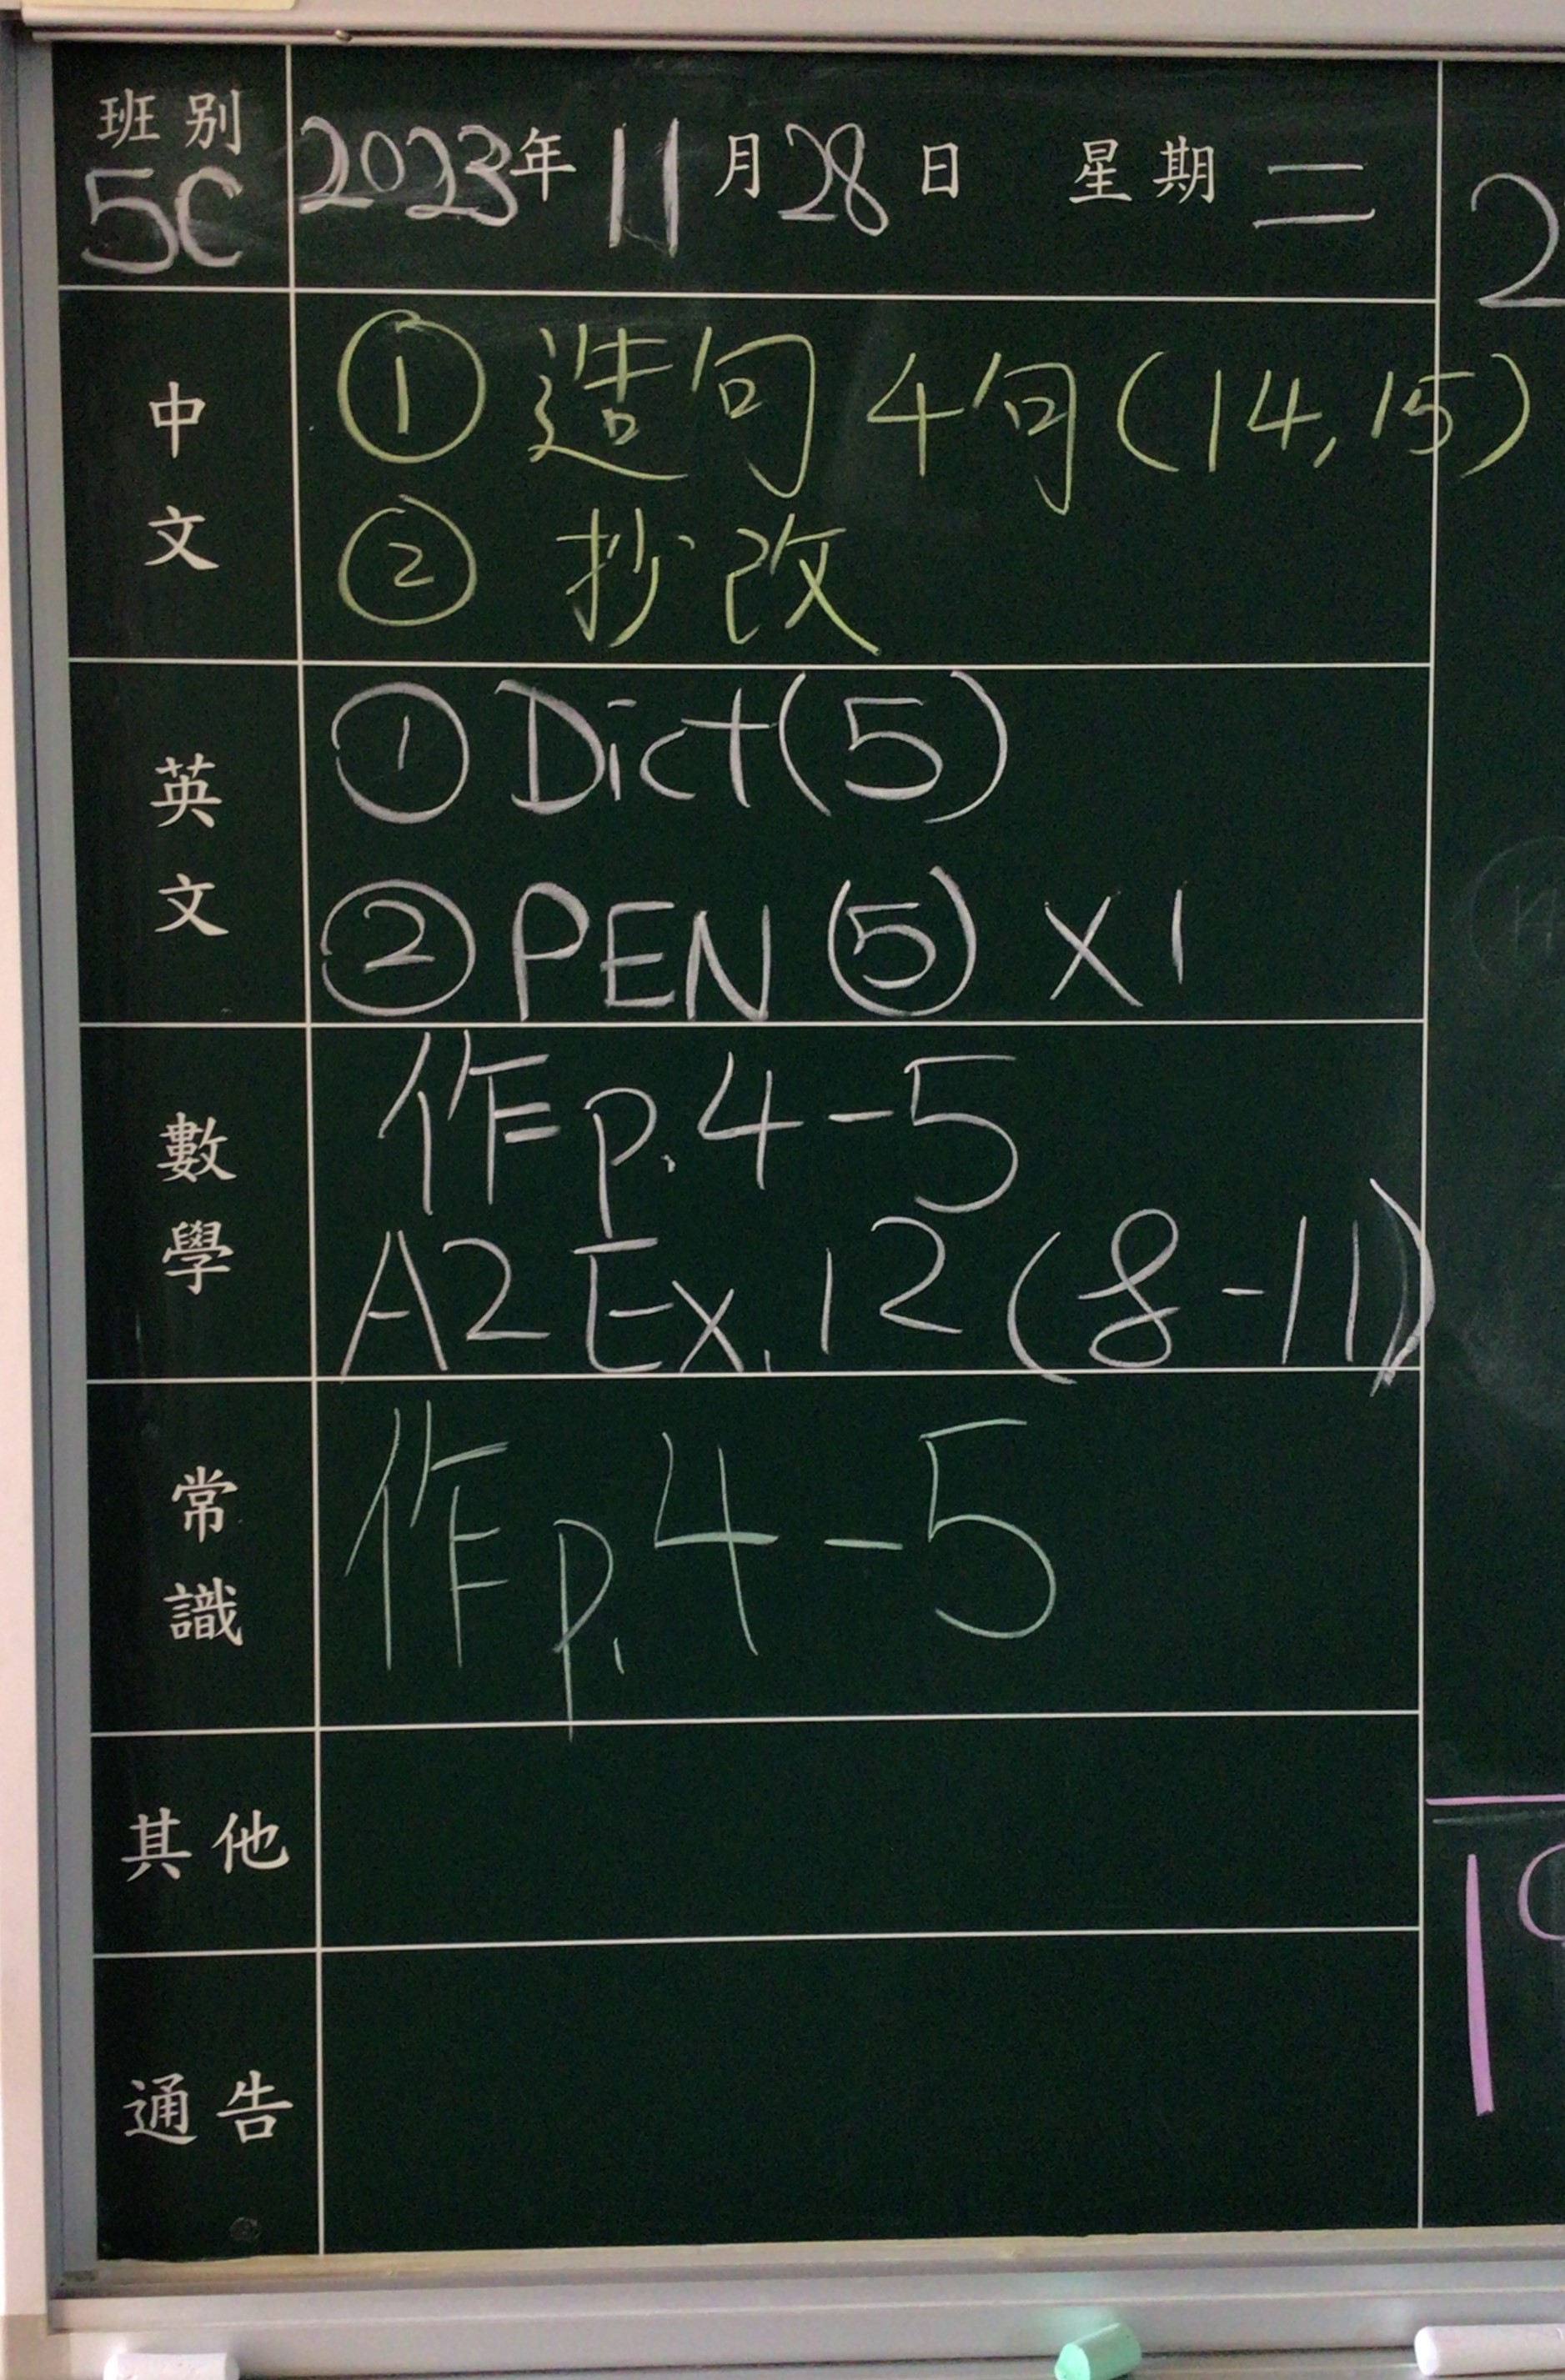 班別 5C
2023年 11月28日 星期二
中文
① 造句4句(14,15)
② 抄改
英文
① Dict(5)
② PEN ⑤ ×1
數學
作p.4-5
A2 Ex.12(8-11)
常識
作p.4-5
其他
通告